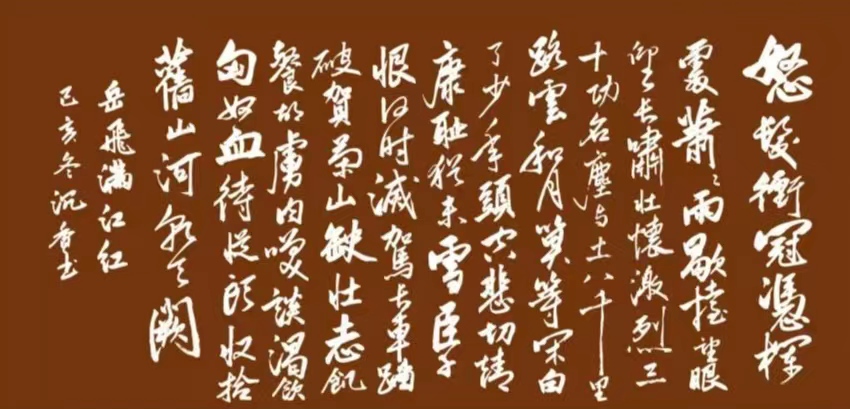 怒髮衝冠憑欄
處蕭〻雨歇擡望眼
仰天長嘯壯懷激烈三
十功名塵与土八千里
路雲和月莫等闲白
了少年頭空悲切靖
康耻猶未雪臣子
恨何時滅駕長車踏
破賀蘭山缺壯志飢
餐胡虜肉笑談渴飲
匈奴血待從頭收拾
舊山河朝天闕
岳飛滿江紅
己亥冬沉香書